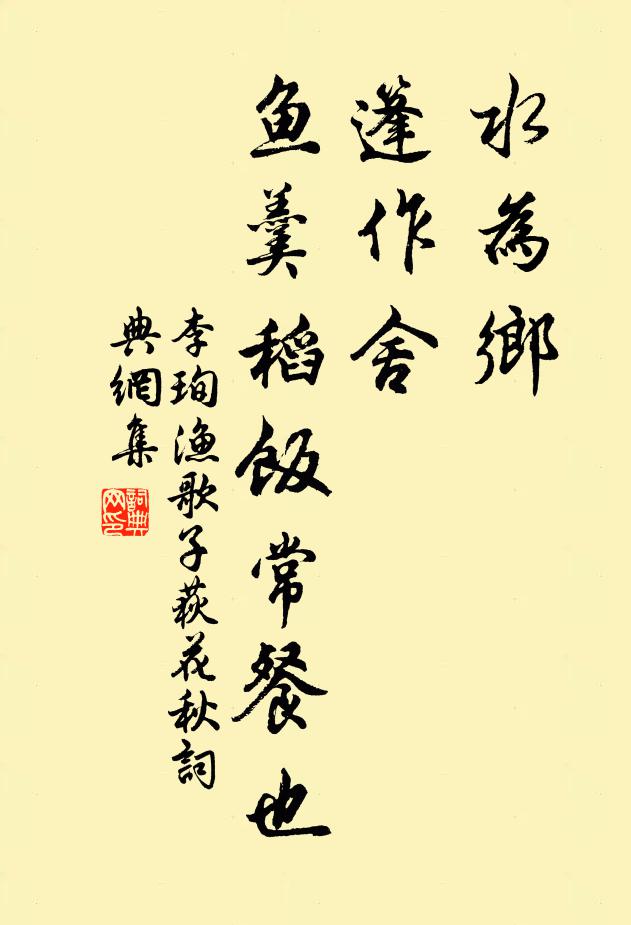 水為鄉
蓬作舍
鱼羹稻飯常餐也
李珣漁歌子荻花秋詞
典網集
詞典网印